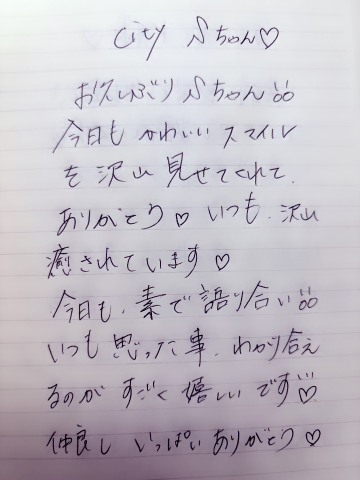 City Sちゃん♡
お久しぶりSちゃん
今日もかわいいスマイル
を沢山見せてくれて、
ありがとう♡いつも、沢山
癒されています♡
今日も、素で語り合い
いつも思った事、わかり合え
るのがすごく嬉しいです♡
仲良しいっぱいありがとう♡